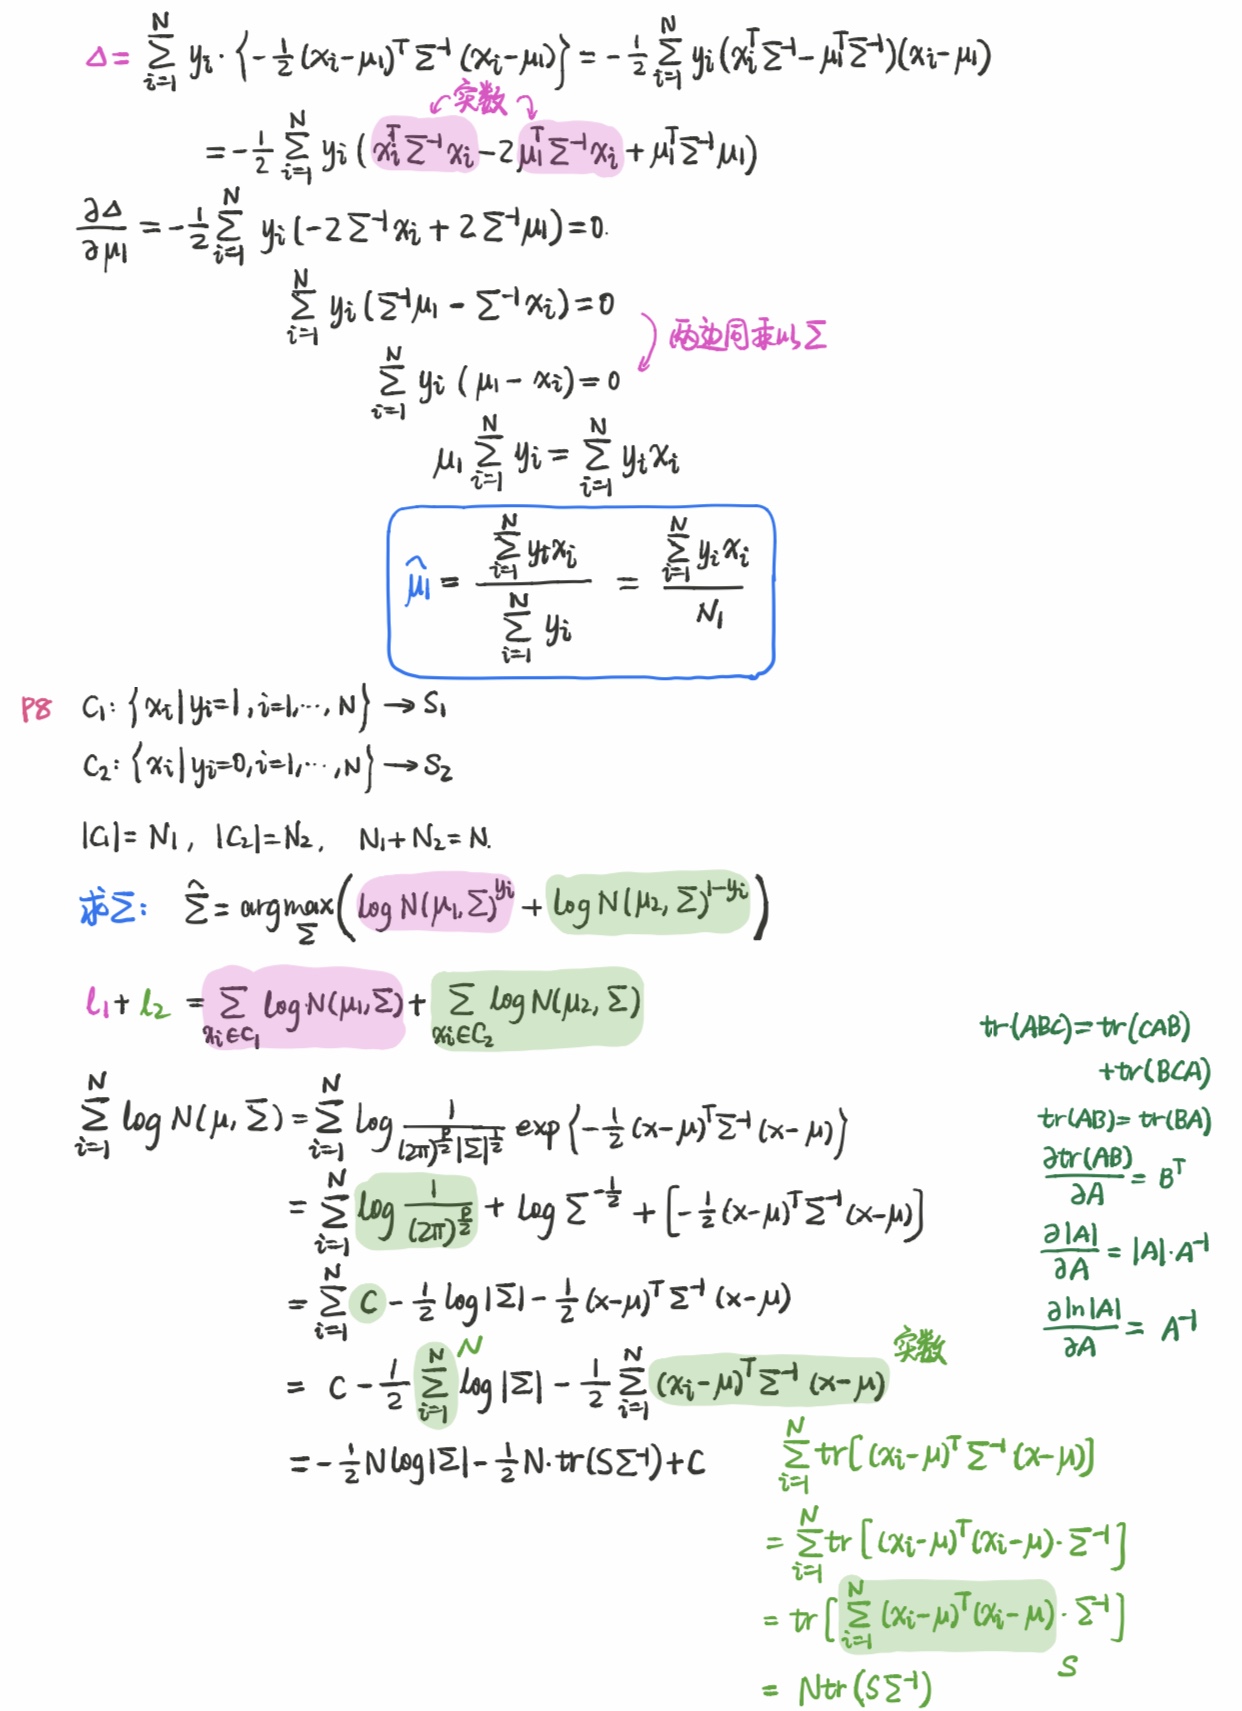 Δ = \sum_{i=1}^{N} y_i · {-\frac{1}{2}(x_i-μ_1)^T Σ^{-1} (x_i-μ_1)} = -\frac{1}{2} \sum_{i=1}^{N} y_i (x_i^T Σ^{-1} - μ_1^T Σ^{-1})(x_i-μ_1)
实数
= -\frac{1}{2} \sum_{i=1}^{N} y_i (x_i^T Σ^{-1} x_i - 2μ_1^T Σ^{-1} x_i + μ_1^T Σ^{-1} μ_1)
\frac{∂Δ}{∂μ_1} = -\frac{1}{2} \sum_{i=1}^{N} y_i (-2Σ^{-1} x_i + 2Σ^{-1} μ_1) = 0.
\sum_{i=1}^{N} y_i (Σ^{-1} μ_1 - Σ^{-1} x_i) = 0
两边同乘以Σ
\sum_{i=1}^{N} y_i (μ_1 - x_i) = 0
μ_1 \sum_{i=1}^{N} y_i = \sum_{i=1}^{N} y_i x_i
\hat{μ}_1 = \frac{\sum_{i=1}^{N} y_i x_i}{\sum_{i=1}^{N} y_i} = \frac{\sum_{i=1}^{N} y_i x_i}{N_1}
P8 C_1: {x_i | y_i=1, i=1,⋯,N} → S_1
C_2: {x_i | y_i=0, i=1,⋯,N} → S_2
|C_1| = N_1, |C_2| = N_2, N_1+N_2 = N.
求Σ: \hat{Σ} = argmax_Σ (log N(μ_1,Σ)^{y_i} + log N(μ_2,Σ)^{1-y_i})
l_1 + l_2 = \sum_{x_i∈C_1} log N(μ_1,Σ) + \sum_{x_i∈C_2} log N(μ_2,Σ)
\sum_{i=1}^{N} log N(μ,Σ) = \sum_{i=1}^{N} log \frac{1}{(2π)^{\frac{p}{2}} |Σ|^{\frac{1}{2}}} exp{-\frac{1}{2}(x-μ)^T Σ^{-1} (x-μ)}
= \sum_{i=1}^{N} log \frac{1}{(2π)^{\frac{p}{2}}} + log Σ^{-\frac{1}{2}} + [-\frac{1}{2}(x-μ)^T Σ^{-1} (x-μ)]
= \sum_{i=1}^{N} C - \frac{1}{2} log|Σ| - \frac{1}{2}(x-μ)^T Σ^{-1} (x-μ)
N
实数
= C - \frac{1}{2} \sum_{i=1}^{N} log|Σ| - \frac{1}{2} \sum_{i=1}^{N} (x_i-μ)^T Σ^{-1} (x-μ)
= -\frac{1}{2} N log|Σ| - \frac{1}{2} N·tr(SΣ^{-1}) + C
tr(ABC) = tr(CAB)
+tr(BCA)
tr(AB) = tr(BA)
\frac{∂tr(AB)}{∂A} = B^T
\frac{∂|A|}{∂A} = |A|·A^{-1}
\frac{∂ln|A|}{∂A} = A^{-1}
\sum_{i=1}^{N} tr[(x_i-μ)^T Σ^{-1} (x-μ)]
= \sum_{i=1}^{N} tr[(x_i-μ)^T (x_i-μ)·Σ^{-1}]
= tr[\sum_{i=1}^{N} (x_i-μ)^T (x_i-μ)·Σ^{-1}]
S
= Ntr(SΣ^{-1})